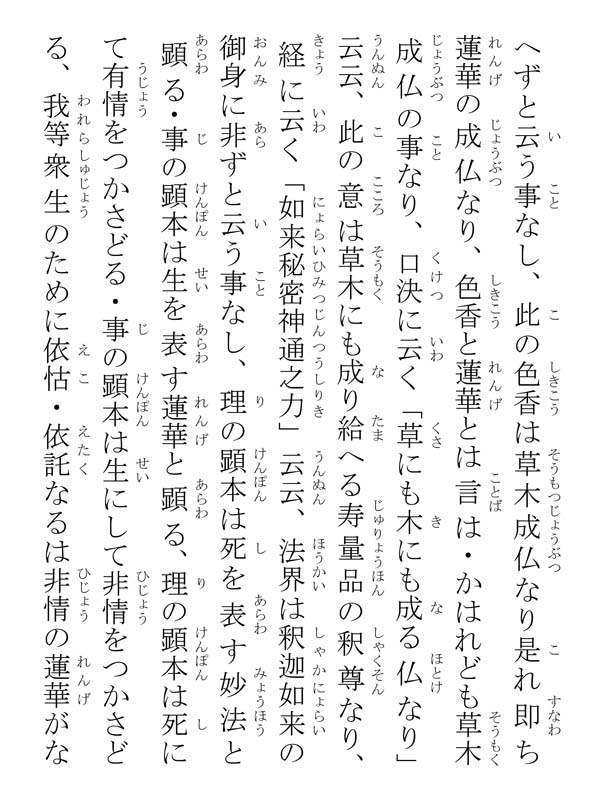 へずと云う事なし、此の色香は草木成仏なり是れ即ち
蓮華の成仏なり、色香と蓮華とは言は・かはれども草木
成仏の事なり、口決に云く「草にも木にも成る仏なり」
云云、此の意は草木にも成り給へる寿量品の釈尊なり、
経に云く「如来秘密神通之力」云云、法界は釈迦如来の
御身に非ずと云う事なし、理の顕本は死を表す妙法と
顕る・事の顕本は生を表す蓮華と顕る、理の顕本は死に
て有情をつかさどる・事の顕本は生にして非情をつかさど
る、我等衆生のために依怙・依託なるは非情の蓮華がな